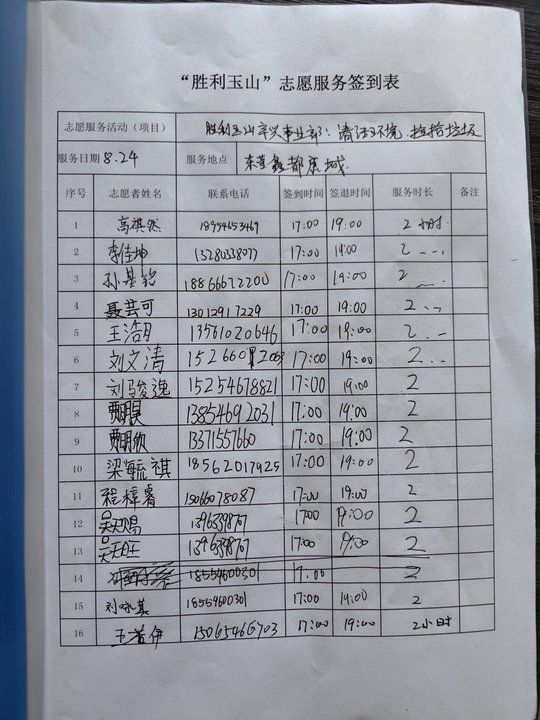 “胜利玉山”志愿服务签到表
志愿服务活动（项目） 胜利玉山 事业部：清洁环境、捡拾垃圾
服务日期 8.24 服务地点 都 城
序号 志愿者姓名 联系电话 签到时间 签退时间 服务时长 备注
1 高祺然 18954653469 17:00 19:00 2小时
2 李佳坤 13280338077 17:00 19:00 2
3 孙基铭 18866672200 17:00 19:00 2
4 聂芸可 13012917229 17:00 19:00 2
5 王浩 13561020646 17:00 19:00 2
6 刘文清 17:00 19:00 2
7 刘骏逸 15254678821 17:00 19:00 2
8 13854692031 17:00 19:00 2
9 13371557660 17:00 19:00 2
10 梁毓祺 18562017925 17:00 19:00 2
11 程梓睿 15066078087 17:00 19:00 2
12 17:00 19:00 2
13 17:00 19:00 2
14 18554600301 17:00 2
15 刘咏 18554600301 17:00 19:00 2
16 王若伊 15065466703 17:00 19:00 2小时